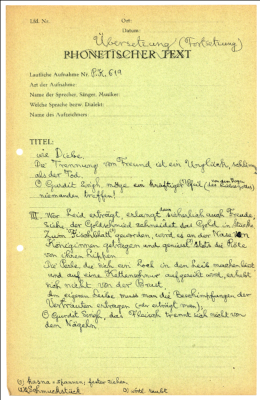 Lfd. Nr.
Ort:
Datum:
Übersetzung (Fortsetzung)
PHONETISCHER TEXT
Lautliche Aufnahme Nr. P.K. 619
Art der Aufnahme:
Name der Sprecher, Sänger, Musiker:
Welche Sprache bezw. Dialekt:
Name des Aufnehmers:
TITEL:
wie Diebe.
Die Trennung vom Freund ist ein Unglück, schlimmer
als der Tod.
O Gurdit Singh, möge ein kräftiger Pfeil
niemanden treffen!
III. Wer Leid erträgt, erlangt sicherlich auch Freude,
Siehe, der Goldschmied schneidet das Gold in Stücke
Zum geworden, wird es an der Nase von
Königinnen getragen und geniesst stets die Röte
von ihren Lippen
Die Perle, die sich ein Loch in den Leib machen lässt
und auf eine Kette aufgereiht wird, erhebt
sich nicht von der Brust
Am eigenen Leibe muss man die Beschimpfungen der
Vertrauten ertragen (wer erträgt man),
O Gurdit Singh, das Fleisch trennt sich nicht von
den Nägeln
fester ziehen
Schmuckstück